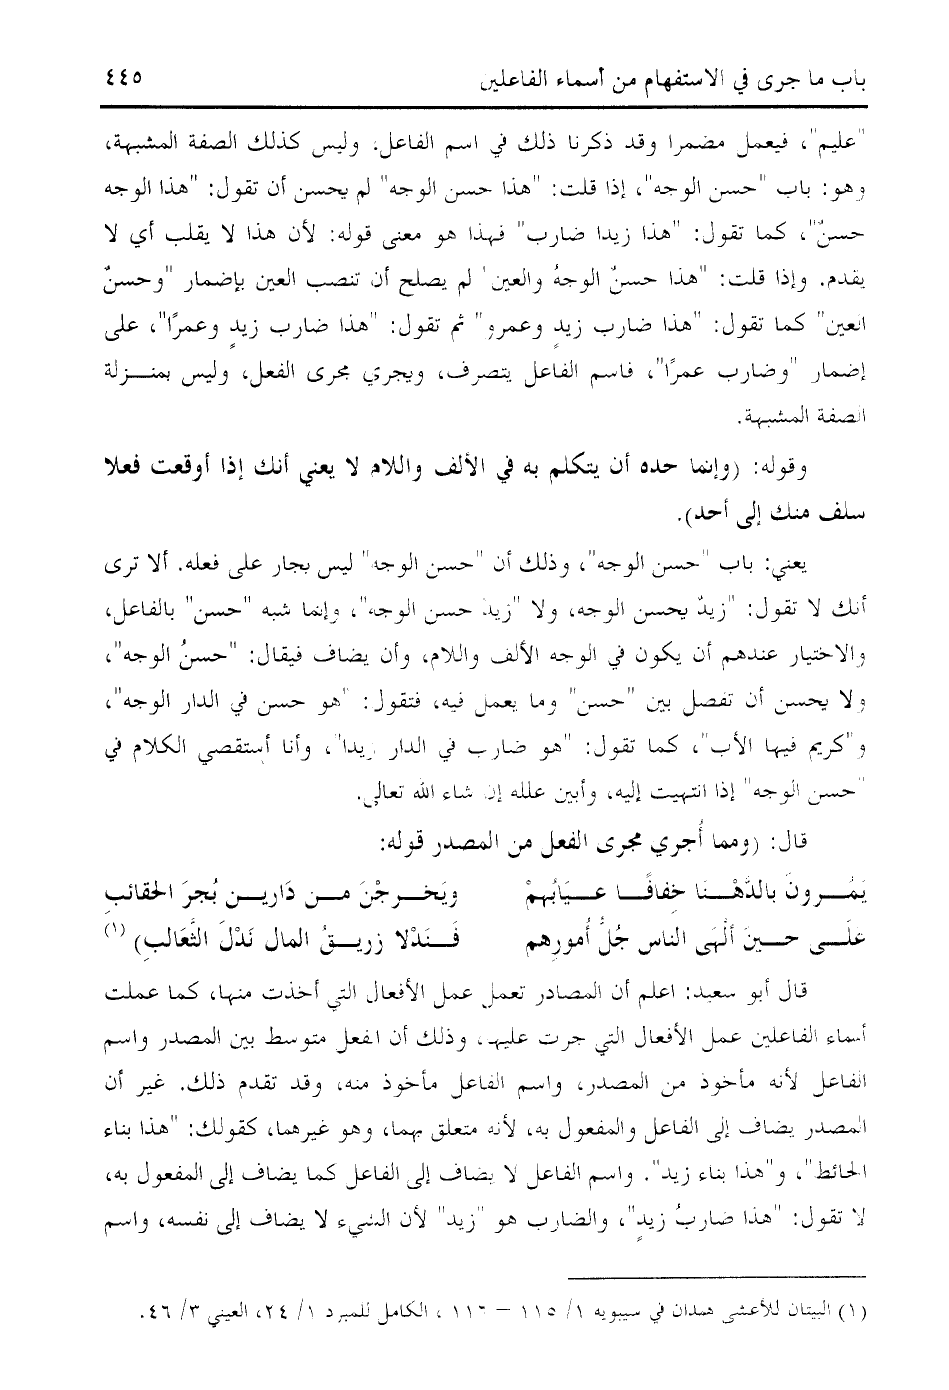 باب ما جرى في الاستفهام من أسماء الفاعلين ٤٤٥
"عليم"، فيعمل مضمرا وقد ذكرنا ذلك في اسم الفاعل. وليس كذلك الصفة المشبهة،
وهو: باب "حسن الوجه"، إذا قلت: "هذا حسن الوجه" لم يحسن أن تقول: "هذا الوجه
حسنٌ"، كما تقول: "هذا زيدا ضارب" فهذا هو معنى قوله: لأن هذا لا يقلب أي لا
يقدم. وإذا قلت: "هذا حسنُ الوجهُ والعين" لم يصلح أن تنصب العين بإضمار "وحسنٌ
العين" كما تقول: "هذا ضارب زيدٍ وعمرو" ثم تقول: "هذا ضارب زيدٍ وعمرًا"، على
إضمار "وضارب عمرًا"، فاسم الفاعل يتصرف، ويجري مجرى الفعل، وليس بمنـــزلة
الصفة المشبهة.
وقوله: (وإنما حده أن يتكلم به في الألف واللام لا يعني أنك إذا أوقعت فعلا
سلف منك إلى أحد).
يعني: باب "حسن الوجه"، وذلك أن "حسن الوجه" ليس بجار على فعله. ألا ترى
أنك لا تقول: "زيدٌ يحسن الوجه، ولا "زيد حسن الوجه"، وإنما شبه "حسن" بالفاعل،
والاختيار عندهم أن يكون في الوجه الألف واللام، وأن يضاف فيقال: "حسنُ الوجه"،
ولا يحسن أن تفصل بين "حسن" وما يعمل فيه، فتقول: "هو حسن في الدار الوجه"،
و"كريم فيها الأب"، كما تقول: "هو ضارب في الدار زيدا"، وأنا أستقصي الكلام في
"حسن الوجه" إذا انتهيت إليه، وأبين علله إن شاء الله تعالى.
قال: (ومما أُجري مجرى الفعل من المصدر قوله:
يَمُـــرونَ بالدَّهْـــنَا خفافًـــا عـــيَابُهمْ ويَخـــرجْنَ مـــن دَاريـــن بُجرَ الحقائب
علَـــى حـــينَ ألْهَى الناس جُلُّ أمُورهم فَـــنَدْلا زريـــقُ المال نَدْلَ الثَّعالبِ) (١)
قال أبو سعيد: اعلم أن المصادر تعمل عمل الأفعال التي أخذت منها، كما عملت
أسماء الفاعلين عمل الأفعال التي جرت عليها، وذلك أن الفعل متوسط بين المصدر واسم
الفاعل لأنه مأخوذ من المصدر، واسم الفاعل مأخوذ منه، وقد تقدم ذلك. غير أن
المصدر يضاف إلى الفاعل والمفعول به، لأنه متعلق بهما، وهو غيرهما، كقولك: "هذا بناء
الحائط"، و"هذا بناء زيد". واسم الفاعل لا يضاف إلى الفاعل كما يضاف إلى المفعول به،
لا تقول: "هذا ضاربُ زيدٍ"، والضارب هو "زيد" لأن الشيء لا يضاف إلى نفسه، واسم
(١) البيتان للأعشى همدان في سيبويه ١/ ١١٥ – ١١٦ ، الكامل للمبرد ١/ ٢٤، العيني ٣/ ٤٦.